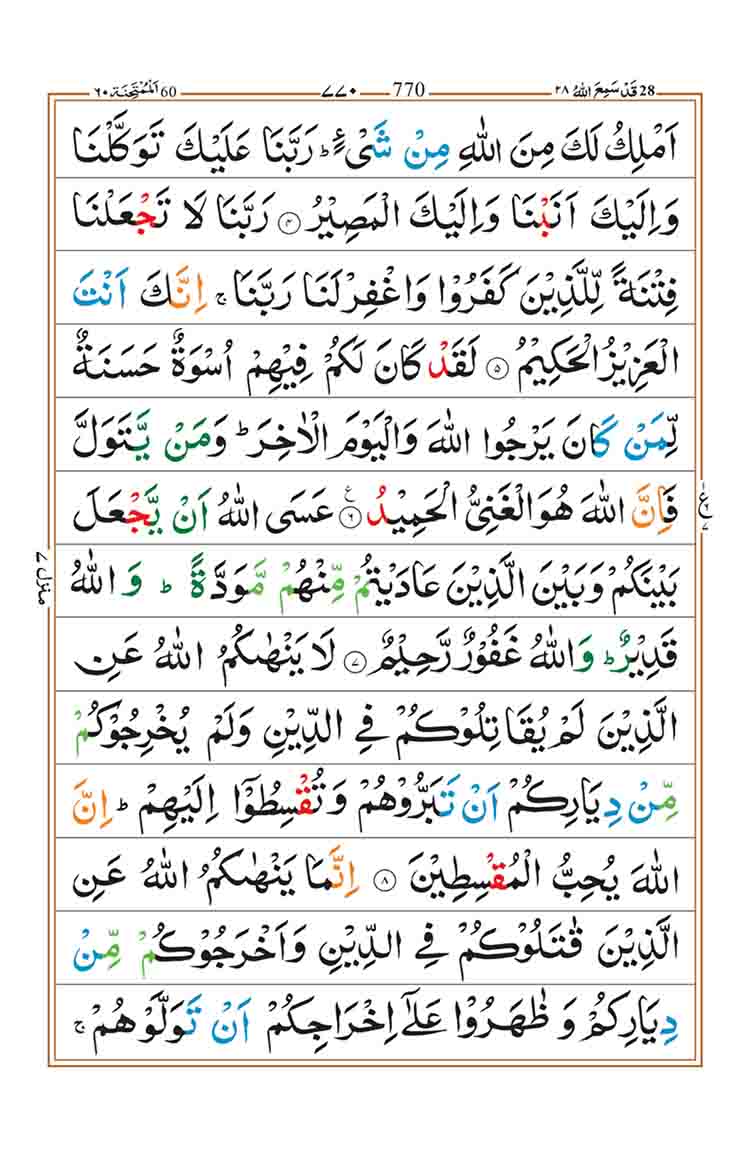 28 قَدْ سَمِعَ اللهُ ٢٨ 770 ٧٧٠ 60 اَلْمُمْتَحِنَة ٦٠
اَمْلِكُ لَكَ مِنَ اللهِ مِنْ شَىْءٍ ؕ رَبَّنَا عَلَيْكَ تَوَكَّلْنَا
وَاِلَيْكَ اَنَبْنَا وَاِلَيْكَ الْمَصِيْرُ ۝۴ رَبَّنَا لَا تَجْعَلْنَا
فِتْنَةً لِّلَّذِيْنَ كَفَرُوْا وَاغْفِرْ لَنَا رَبَّنَا ۚ اِنَّكَ اَنْتَ
الْعَزِيْزُ الْحَكِيْمُ ۝۵ لَقَدْ كَانَ لَكُمْ فِيْهِمْ اُسْوَةٌ حَسَنَةٌ
لِّمَنْ كَانَ يَرْجُوا اللهَ وَالْيَوْمَ الْاٰخِرَ ؕ وَمَنْ يَّتَوَلَّ
فَاِنَّ اللهَ هُوَ الْغَنِىُّ الْحَمِيْدُ ۝۶ ع عَسَى اللهُ اَنْ يَّجْعَلَ
ع ٧
بَيْنَكُمْ وَبَيْنَ الَّذِيْنَ عَادَيْتُمْ مِّنْهُمْ مَّوَدَّةً ؕ وَاللهُ
منزل ٧
قَدِيْرٌ ؕ وَاللهُ غَفُوْرٌ رَّحِيْمٌ ۝۷ لَا يَنْهٰىكُمُ اللهُ عَنِ
الَّذِيْنَ لَمْ يُقَاتِلُوْكُمْ فِى الدِّيْنِ وَلَمْ يُخْرِجُوْكُمْ
مِّنْ دِيَارِكُمْ اَنْ تَبَرُّوْهُمْ وَتُقْسِطُوْٓا اِلَيْهِمْ ؕ اِنَّ
اللهَ يُحِبُّ الْمُقْسِطِيْنَ ۝۸ اِنَّمَا يَنْهٰىكُمُ اللهُ عَنِ
الَّذِيْنَ قٰتَلُوْكُمْ فِى الدِّيْنِ وَاَخْرَجُوْكُمْ مِّنْ
دِيَارِكُمْ وَظٰهَرُوْا عَلٰٓى اِخْرَاجِكُمْ اَنْ تَوَلَّوْهُمْ ۚ